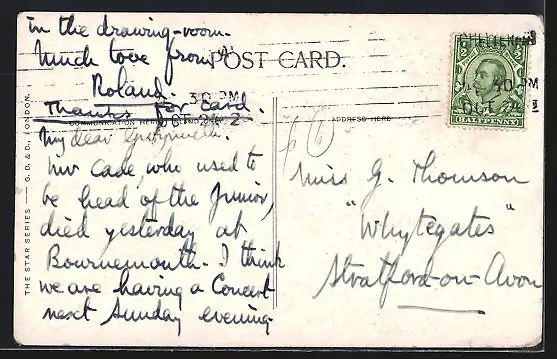 in the drawing-room.
Much love from
Roland.
Thanks for card.
POST CARD.
CHELTENHAM
3 30 PM
OCT 24 12
COMMUNICATION HERE
ADDRESS HERE
HALFPENNY
THE STAR SERIES — G. D. & D., LONDON.
My dear
Mr Cade, who used to
be head of the Junior,
died yesterday at
Bournemouth. I think
we are having a Concert
next Sunday evening
Miss G. Thomson
"Whytegates"
Stratford-on-Avon